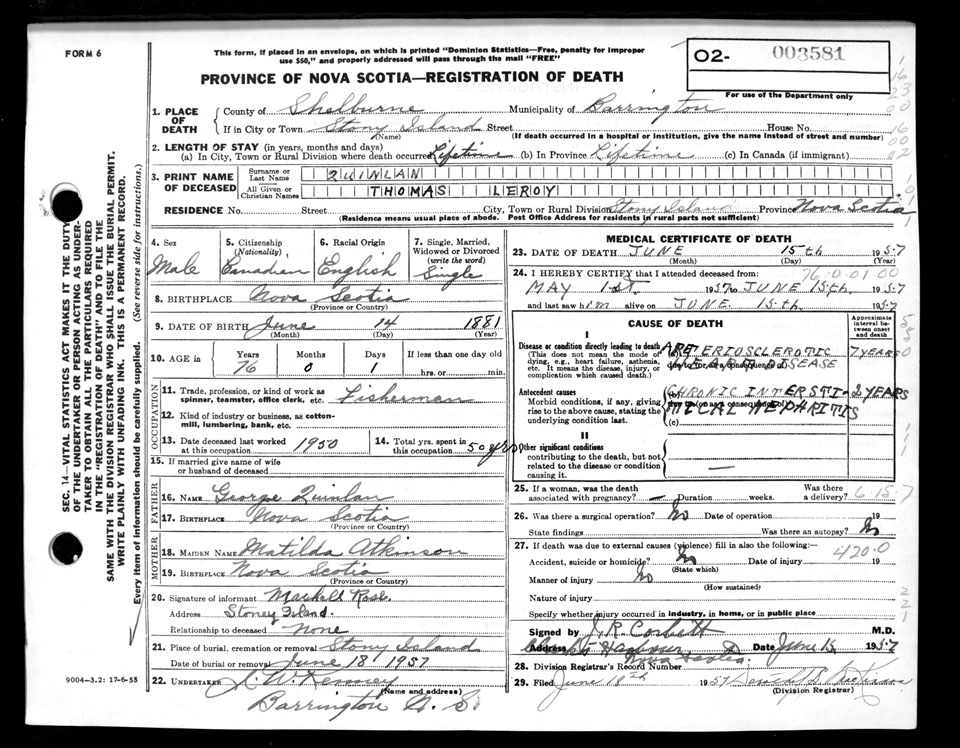 FORM 6
This form, if placed in an envelope, on which is printed "Dominion Statistics—Free, penalty for improper
use $50," and properly addressed will pass through the mail "FREE"
PROVINCE OF NOVA SCOTIA—REGISTRATION OF DEATH
O2- 003581
For use of the Department only
1. PLACE OF DEATH County of Shelburne Municipality of Barrington
If in City or Town Stony Island Street House No.
(Name) (If death occurred in a hospital or institution, give the name instead of street and number)
2. LENGTH OF STAY (in years, months and days)
(a) In City, Town or Rural Division where death occurred Lifetime (b) In Province Lifetime (c) In Canada (if immigrant)
3. PRINT NAME OF DECEASED Surname or Last Name QUINLAN
All Given or Christian Names THOMAS LEROY
RESIDENCE No. Street City, Town or Rural Division Stony Island Province Nova Scotia
(Residence means usual place of abode. Post Office Address for residents in rural parts not sufficient)
4. Sex Male
5. Citizenship (Nationality) Canadian
6. Racial Origin English
7. Single, Married, Widowed or Divorced (write the word) Single
8. BIRTHPLACE Nova Scotia
(Province or Country)
9. DATE OF BIRTH June 14 1881
(Month) (Day) (Year)
10. AGE in Years Months Days If less than one day old
76 0 1 hrs. or min.
OCCUPATION
11. Trade, profession, or kind of work as spinner, teamster, office clerk, etc. Fisherman
12. Kind of industry or business, as cotton-mill, lumbering, bank, etc.
13. Date deceased last worked at this occupation 1950
14. Total yrs. spent in this occupation 50 yrs
15. If married give name of wife or husband of deceased
FATHER
16. NAME George Quinlan
17. BIRTHPLACE Nova Scotia
(Province or Country)
MOTHER
18. MAIDEN NAME Matilda Atkinson
19. BIRTHPLACE Nova Scotia
(Province or Country)
20. Signature of informant Ross
Address Stoney Island.
Relationship to deceased None
21. Place of burial, cremation or removal Stony Island
Date of burial or removal June 18 1957
22. UNDERTAKER W Kenney
(Name and address)
Barrington N. S.
MEDICAL CERTIFICATE OF DEATH
23. DATE OF DEATH JUNE 15th 1957
(Month) (Day)
24. I HEREBY CERTIFY that I attended deceased from: 76-0-01 00
MAY 1st 1957 to JUNE 15th. 1957
and last saw him alive on JUNE 15th. 1957
CAUSE OF DEATH
Approximate interval between onset and death
I
Disease or condition directly leading to death
(This does not mean the mode of dying, e.g., heart failure, asthenia, etc. It means the disease, injury, or complication which caused death.)
ARTERIOSCLEROTIC 7 YEARS
HEART DISEASE
due to (or as a consequence of)
Antecedent causes
Morbid conditions, if any, giving rise to the above cause, stating the underlying condition last.
CHRONIC INTERSTI- 2 YEARS
due to (or as a consequence of)
TICAL NEPHRITIS
(c)
II
Other significant conditions
contributing to the death, but not related to the disease or condition causing it. —
25. If a woman, was the death associated with pregnancy? — Duration weeks. Was there a delivery?
26. Was there a surgical operation? No Date of operation 19
State findings Was there an autopsy? No
27. If death was due to external causes (violence) fill in also the following: 420.0
Accident, suicide or homicide? No Date of injury 19
(State which)
Manner of injury No
(How sustained)
Nature of injury
Specify whether injury occurred in industry, in home, or in public place
Signed by J. R. Corbett M.D.
Address Clark's Harbour Date June 15 1957
Nova Scotia
28. Division Registrar's Record Number
29. Filed June 18th 1957
(Division Registrar)
9004-3.2: 17-6-55
SEC. 14—VITAL STATISTICS ACT MAKES IT THE DUTY
OF THE UNDERTAKER OR PERSON ACTING AS UNDER-
TAKER TO OBTAIN ALL THE PARTICULARS REQUIRED
IN THE "REGISTRATION OF DEATH" AND TO FILE THE
SAME WITH THE DIVISION REGISTRAR WHO SHALL ISSUE THE BURIAL PERMIT.
WRITE PLAINLY WITH UNFADING INK. THIS IS A PERMANENT RECORD.
Every item of information should be carefully supplied. (See reverse side for instructions.)